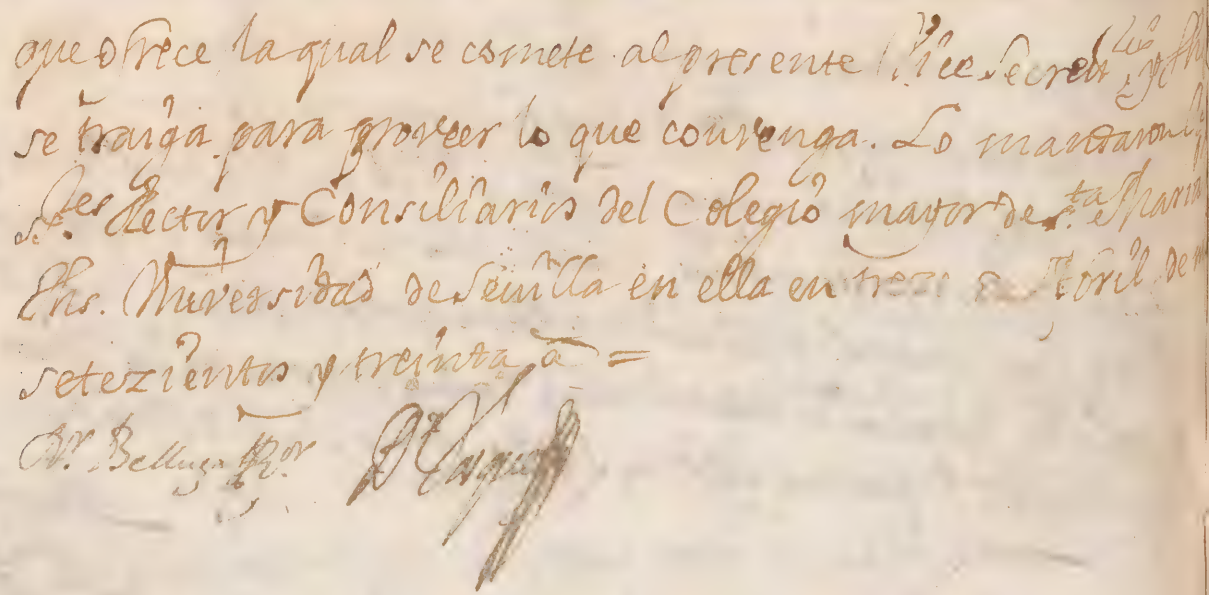 que ofrece la qual se comete al presente Vice Secret.
se traiga para proveer lo que convenga. Lo mandaron
Ses Rector y Consiliarios del Colegio mayor de S.ta Maria
Jhs. Universidad de Sevilla en ella en treze de Abril de
setezientos y treinta a =
Dr. Belluga Ror Dr Vazquez